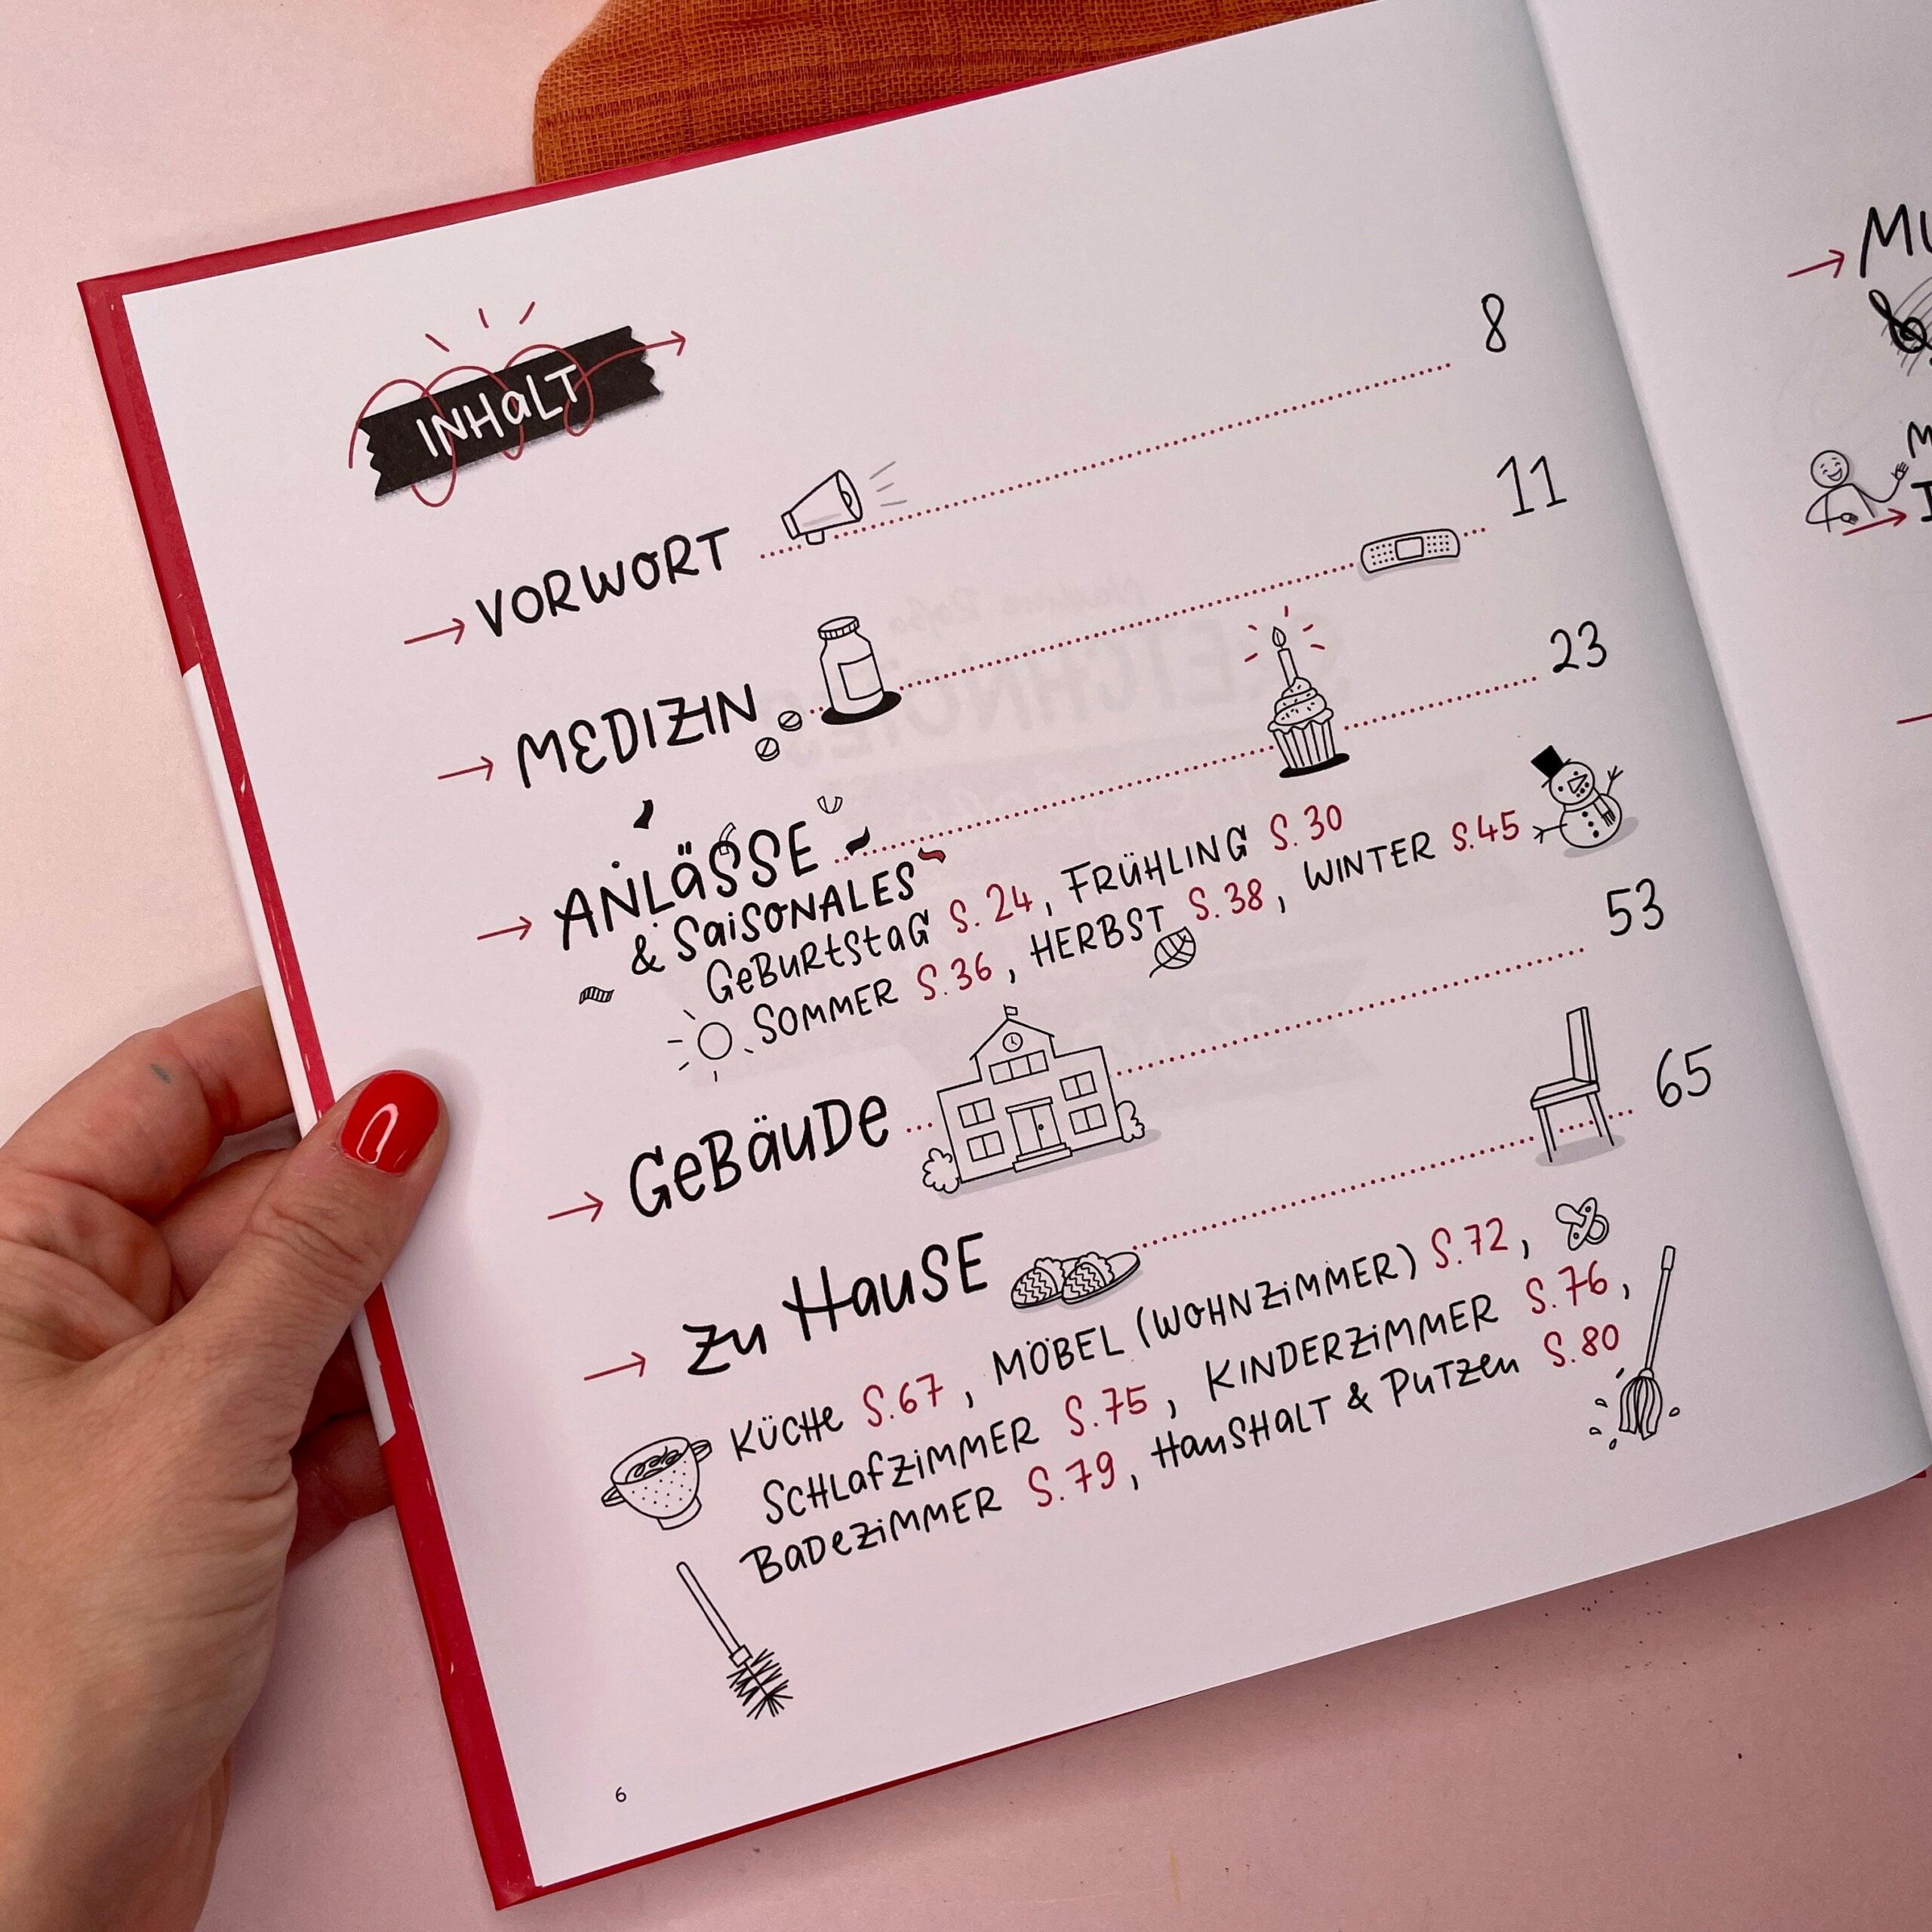 INHALT
VORWORT 8
MEDIZIN 11
ANLÄSSE 23
& SAISONALES
GEBURTSTAG S. 24, FRÜHLING S. 30
SOMMER S. 36, HERBST S. 38, WINTER S. 45
GEBÄUDE 53
ZU HAUSE 65
KÜCHE S. 67, MÖBEL (WOHNZIMMER) S. 72,
SCHLAFZIMMER S. 75, KINDERZIMMER S. 76,
BADEZIMMER S. 79, HAUSHALT & PUTZEN S. 80
6
MU